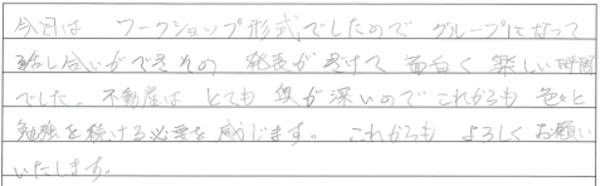 今月は ワークショップ形式でしたので グループになって
話し合いができその 発表が きけて 面白く 楽しい時間
でした。不動産は とても 奥が深いので これからも 色々と
勉強を続ける必要を感じます。 これからも よろしくお願い
いたします。